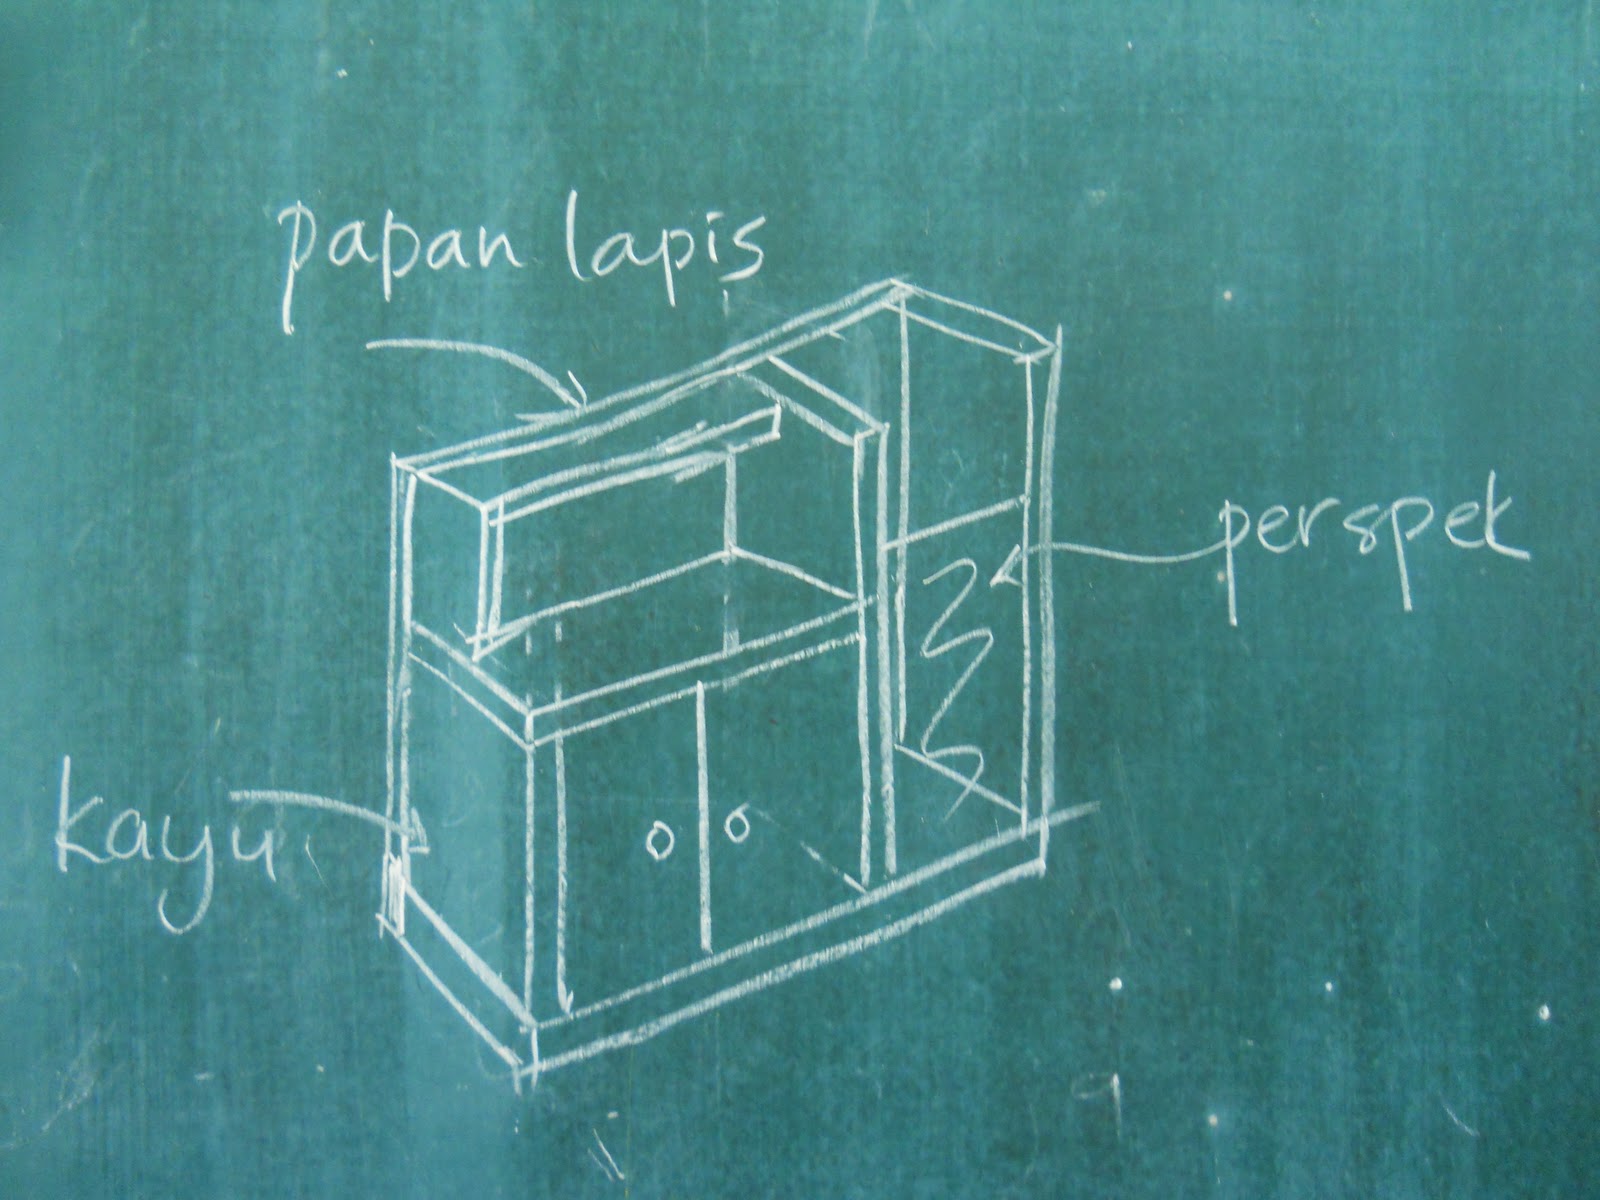 papan lapis
perspek
kayu